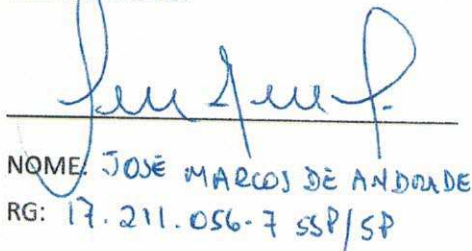 NOME: JOSÉ MARCOS DE ANDRADE
RG: 17.211.056-7 SSP/SP